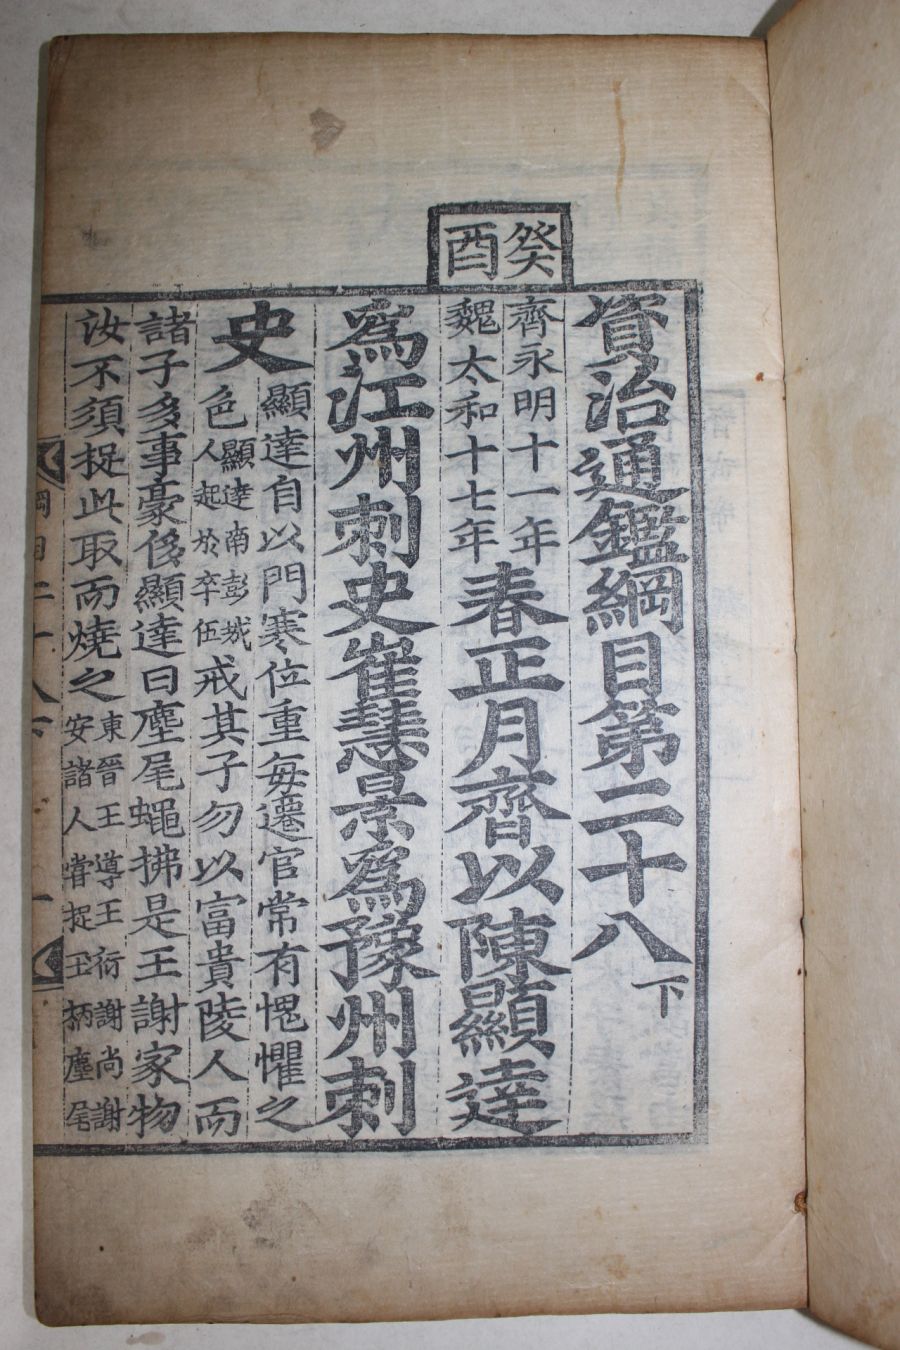 癸酉
資治通鑑綱目第二十八下
齊永明十一年
魏太和十七年
春正月齊以陳顯達
爲江州刺史崔慧景爲豫州刺
史
顯達自以門寒位重每遷官常有愧懼之
色
顯達南彭城
人起於卒伍
戒其子勿以富貴陵人而
諸子多事豪侈顯達曰麈尾蠅拂是王謝家物
汝不須捉此取而燒之
東晉王導王衍謝尚謝
安諸人嘗捉玉柄麈尾
綱目二十八下